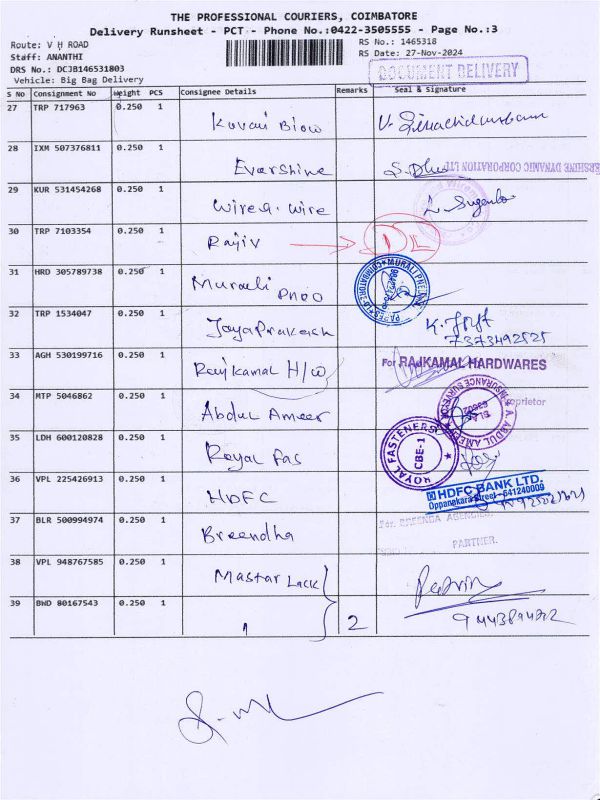 THE PROFESSIONAL COURIERS, COIMBATORE
Delivery Runsheet - PCT - Phone No.:0422-3505555 - Page No.:3
Route: V H ROAD
RS No.: 1465318
Staff: ANANTHI
RS Date: 27-Nov-2024
DRS No.: DCJB146531803
Vehicle: Big Bag Delivery
DOCUMENT DELIVERY
S No Consignment No Weight PCS Consignee Details Remarks Seal & Signature
27 TRP 717963 0.250 1
28 IXM 507376811 0.250 1 Evershine
ERSHINE DYNAMIC CORPORATION LTD
29 KUR 531454268 0.250 1 wires. wire
30 TRP 7103354 0.250 1 Rajiv
31 HRD 305789738 0.250 1 Murali Pneo
MURALI PNE
32 TRP 1534047 0.250 1 Jaya Prakash
7373492525
33 AGH 530199716 0.250 1 Rajkamal H/W
For RAJKAMAL HARDWARES
34 MTP 5046862 0.250 1 Abdul Ameer
oprietor
A. ABDUL AMEE
INSURANCE SURVE
35 LDH 600120828 0.250 1 Royal fas
ROYAL FASTENERS
CBE-1
36 VPL 225426913 0.250 1 HDFC
HDFC BANK LTD.
Oppanakara Street - 641240009
37 BLR 500994974 0.250 1 Breendha
For. BREENDA AGENCIES,
PARTNER.
38 VPL 948767585 0.250 1 Mastar Lack
39 BWD 80167543 0.250 1 2